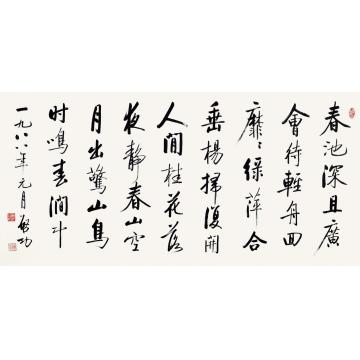 春池深且廣
會待輕舟回
靡﹕綠萍合
垂楊掃復開
人间桂花落
夜静春山空
月出驚山鳥
时鳴春澗中
一九八八年元月啟功